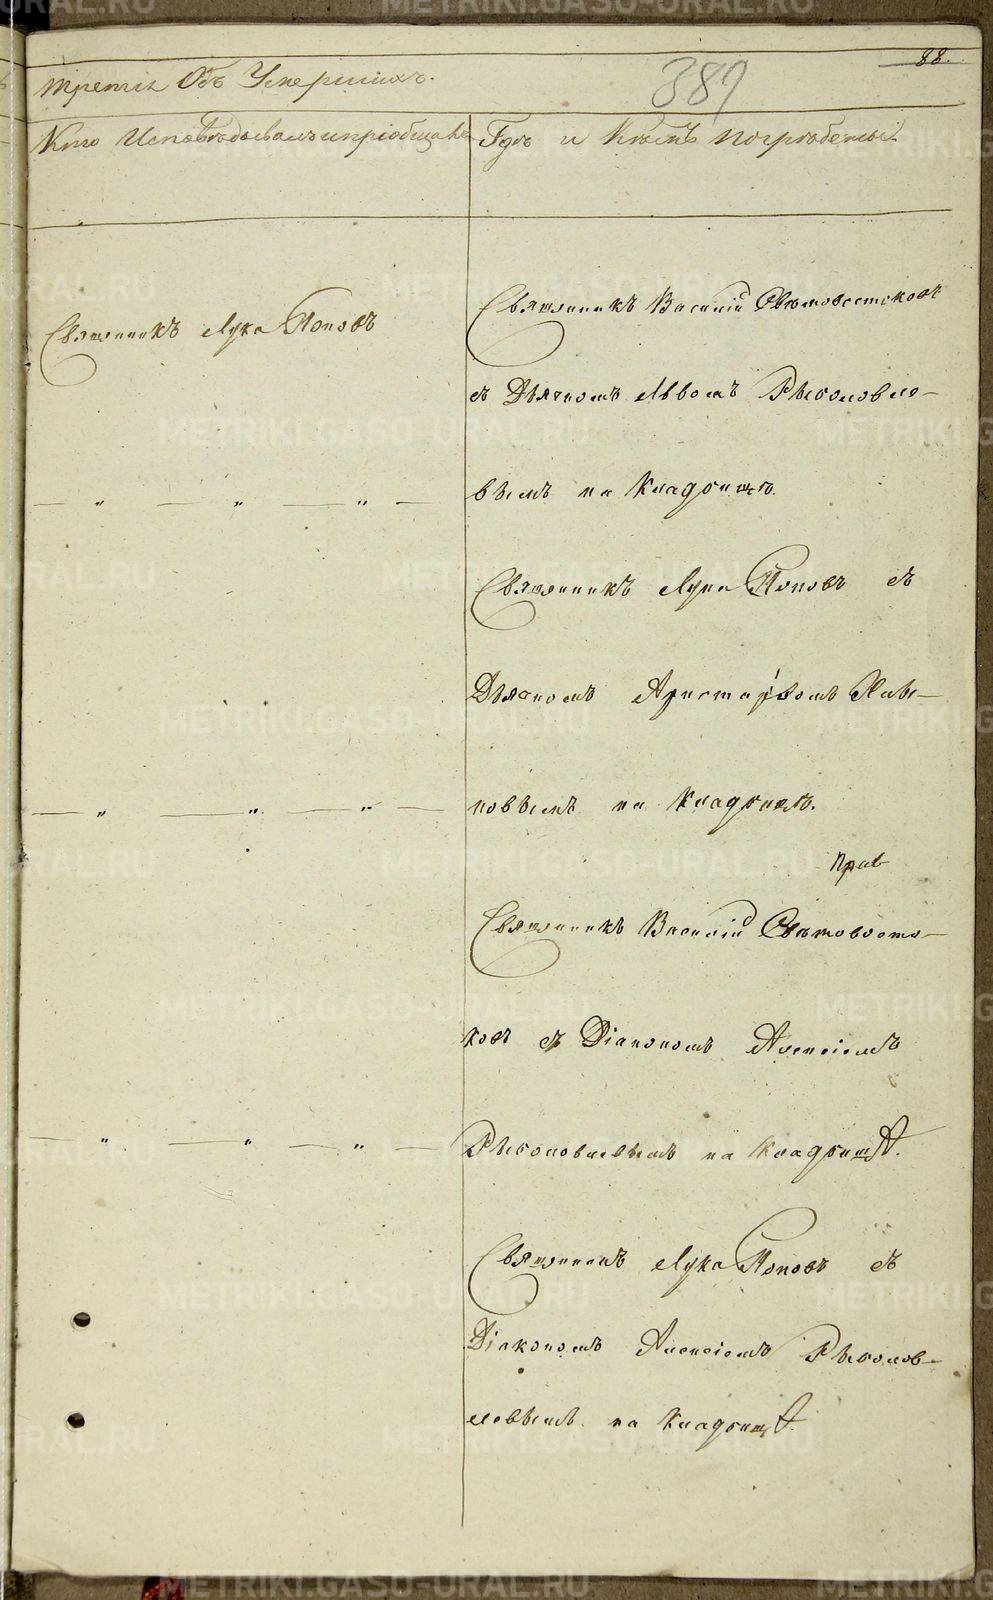 88.
389
третія Объ Умершихъ.
Кто Исповѣдывалъ и пріобщалъ
Гдѣ и Кѣмъ погребены.
Священникъ Лука Поповъ
Священникъ Василій Свѣтовостоковъ
съ Дьячкомъ Львомъ Рыболовле-
вымъ на Кладбищѣ.
Священникъ Лука Поповъ съ
Дьячкомъ Аристархомъ
повымъ на Кладбищѣ.
Священникъ Василій Свѣтовосто-
ковъ съ Діакономъ Алексіемъ
Рыболовлевымъ на Кладбищѣ.
Священникъ Лука Поповъ съ
Діакономъ Алексіемъ Рыболов-
левымъ на Кладбищѣ.
METRIKI.GASO-URAL.RU